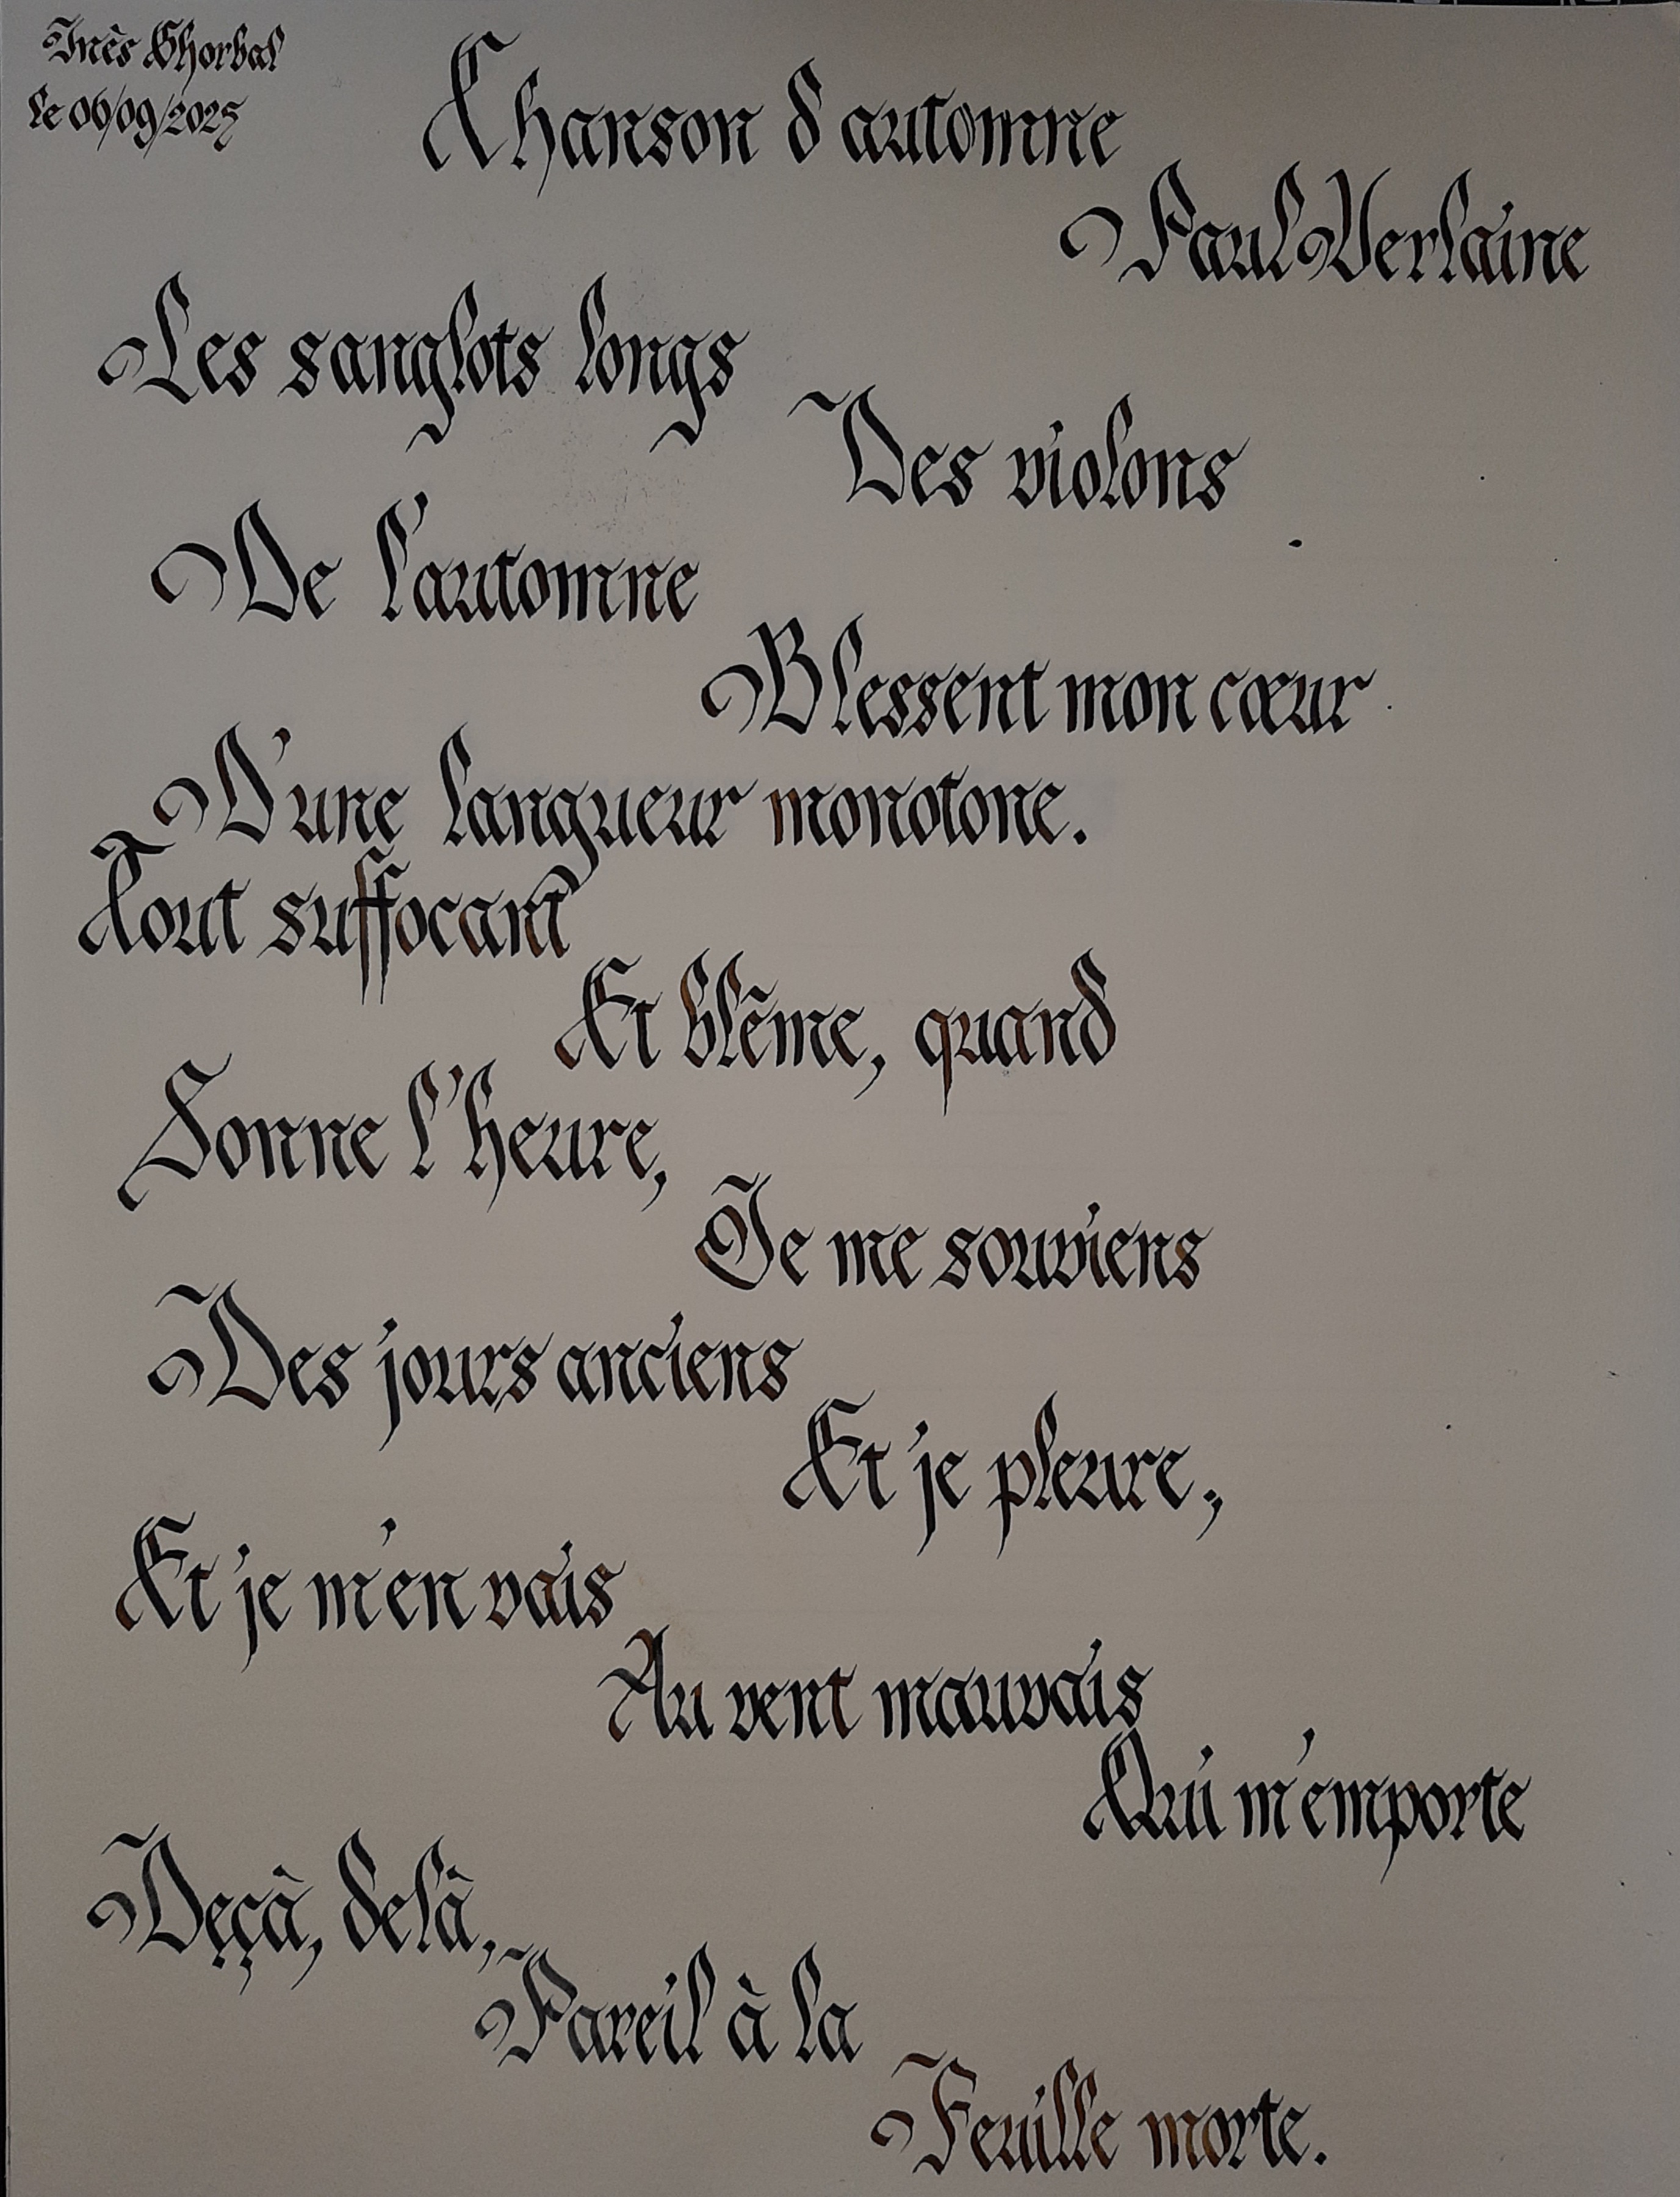 Inès Ghorbal
le 06/09/2025
Chanson d'automne
Paul Verlaine
Les sanglots longs
Des violons
De l'automne
Blessent mon cœur
D'une langueur monotone.
Tout suffocant
Et blême, quand
Sonne l'heure,
Je me souviens
Des jours anciens
Et je pleure;
Et je m'en vais
Au vent mauvais
Qui m'emporte
Deçà, delà,
Pareil à la
Feuille morte.